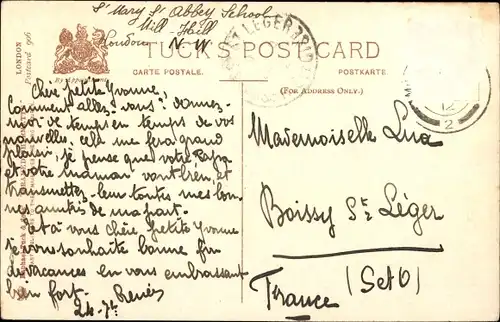 St Mary St Abbey School
Mill-Hill
London N-W
LONDON
Postcard 906
TUCK'S POST CARD
CARTE POSTALE.
POSTKARTE.
(FOR ADDRESS ONLY.)
Chère petite Yvonne,
Comment allez-vous? donnez-
moi de temps en temps de vos
nouvelles, cela me fera grand
plaisir, je pense que votre Papa
et votre maman vont bien, et
transmettez-leur toutes mes bon-
nes amitiés de ma part.
Et à vous Chère petite Yvonne
je vous souhaite bonne fin
de vacances en vous embrassant
bien fort. Renée
24-7
Mademoiselle Lua
Boissy St Léger
(Set O)
France
12
2